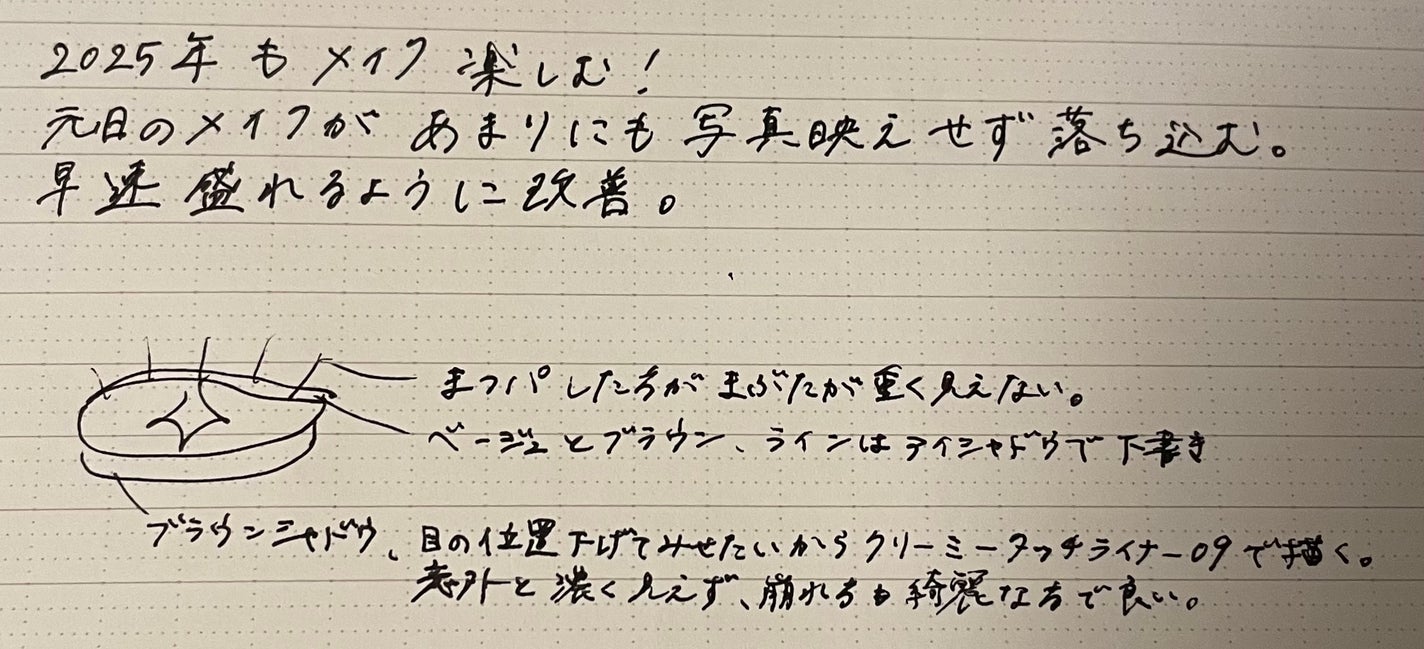 2025年もメイク楽しむ!
元日のメイクがあまりにも写真映えせず落ち込む。
早速盛れるように改善。
まつパした方がまぶたが重く見えない。
ベージュとブラウン、ラインはアイシャドウで下書き
ブラウンシャドウ、目の位置下げてみせたいからクリーミータッチライナー09で描く。
意外と濃く見えず、崩れ方も綺麗な方で良い。